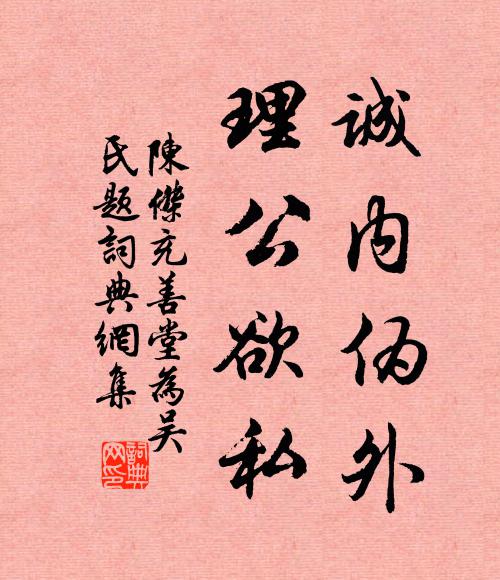 誠内偽外
理公欲私
陳傑充善堂為吳
氏题詞典網集
詞典
网印